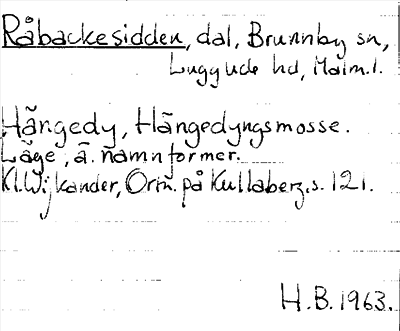 Råbackesidden, dal, Brunnby sn,
Luggude hd, Malm.l.
Hängedy, Hängedyngsmosse.
Läge, ä. namnformer.
Kl. Wijkander, Ortn. på Kullaberg, s. 121.
H.B. 1963.